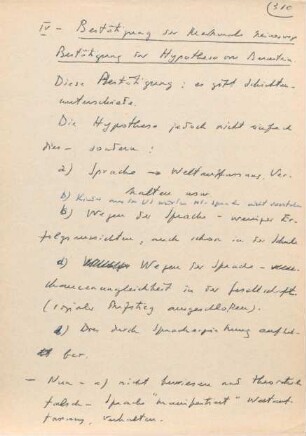 (310
IV - Bestätigung der Merkmale keineswegs
Bestätigung der Hypothese von Bernstein
Diese Bestätigung: es gibt Schichten-
unterschiede.
Die Hypothese jedoch nicht einfach
dies - sondern:
a) Sprache → Weltauffassung, Ver-
halten usw.
b) nicht verstehen
b) Wegen der Sprache - weniger Er-
folgsaussichten, auch schon in der Schule
d) Wegen der Sprache -
chancenungleichheit in der Gesellschaft
(sozialer Aufstieg ausgeschlossen).
d) Dies durch Spracherziehung aufheb-
bar.
- Nun - a) nicht bewiesen und theoretisch
falsch - Sprache "manifestiert" Weltauf-
fassung, Verhalten.